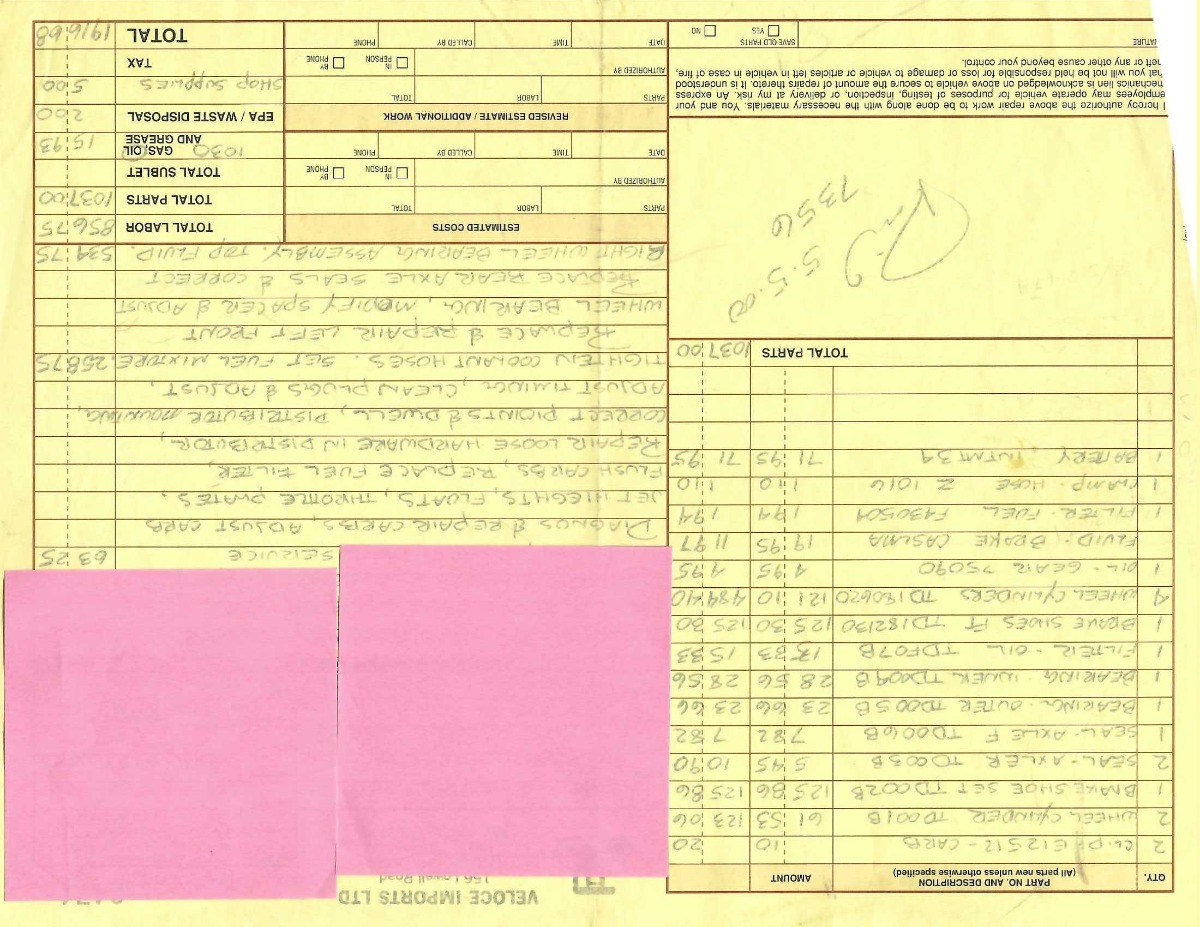 VELOCE IMPORTS LTD
QTY. PART NO. AND DESCRIPTION AMOUNT
(All parts new unless otherwise specified)
2 CL.PHE12S12 - CARB 10 20
2 WHEEL CYLINDER TD001B 61 53 123 06
1 BRAKE SHOE SET TD002B 125 86 125 86
2 SEAL - AXLER TD003B 5 45 10 90
1 SEAL - AXLE F TD006B 7 82 7 82
1 BEARING - OUTER TD005B 23 66 23 66
1 BEARING - INNER TD004B 28 56 28 56
1 FILTER - OIL - TDF07B 15 33 15 33
1 BRAKE SHOES FT TD182130 125 30 125 30
4 WHEEL CYLINDERS TD180620 121 10 484 40
1 OIL - GEAR 75090 4 95 4 95
FLUID - BRAKE CASLMA 19 95 11 97
1 FILTER - FUEL - F430504 1 94 1 94
1 CLAMP - HOSE Z 1016 1 10 1 10
1 BATTERY, INTMT34 71 95 71 95
TOTAL PARTS 1037 00
5.5.00
7356
I hereby authorize the above repair work to be done along with the necessary materials. You and your
employees may operate vehicle for purposes of testing, inspection, or delivery at my risk. An express
mechanics lien is acknowledged on above vehicle to secure the amount of repairs thereto. It is understood
that you will not be held responsible for loss or damage to vehicle or articles left in vehicle in case of fire,
theft or any other cause beyond your control.
NATURE SAVE OLD PARTS YES NO
SERVICE 63 25
DIAGNOS & REPAIR CARBS, ADJUST CARB
JET HIEGHTS, FLOATS, THROTTLE PLATES,
FLUSH CARBS, REPLACE FUEL FILTER,
REPAIR LOOSE HARDWARE IN DISTRIBUTOR,
CORRECT POINTS & DWELL, DISTRIBUTOR MOUNTING,
ADJUST TIMING, CLEAN PLUGS & ADJUST,
TIGHTEN COOLANT HOSES. SET FUEL MIXTURE. 258 75
REPLACE & REPAIR LEFT FRONT
WHEEL BEARING, MODIFY SPACER & ADJUST
REPLACE REAR AXLE SEALS & CORRECT
RIGHT WHEEL BEARING ASSEMBLY. TOP FLUID. 534 75
ESTIMATED COSTS
PARTS LABOR TOTAL
AUTHORIZED BY IN PERSON BY PHONE
DATE TIME CALLED BY PHONE
REVISED ESTIMATE / ADDITIONAL WORK
PARTS LABOR TOTAL
AUTHORIZED BY IN PERSON BY PHONE
DATE TIME CALLED BY PHONE
TOTAL LABOR 856 75
TOTAL PARTS 1037 00
TOTAL SUBLET
GAS/OIL AND GREASE 1030 15 93
EPA / WASTE DISPOSAL 2 00
SHOP SUPPLIES 5 00
TAX
TOTAL 1916 68